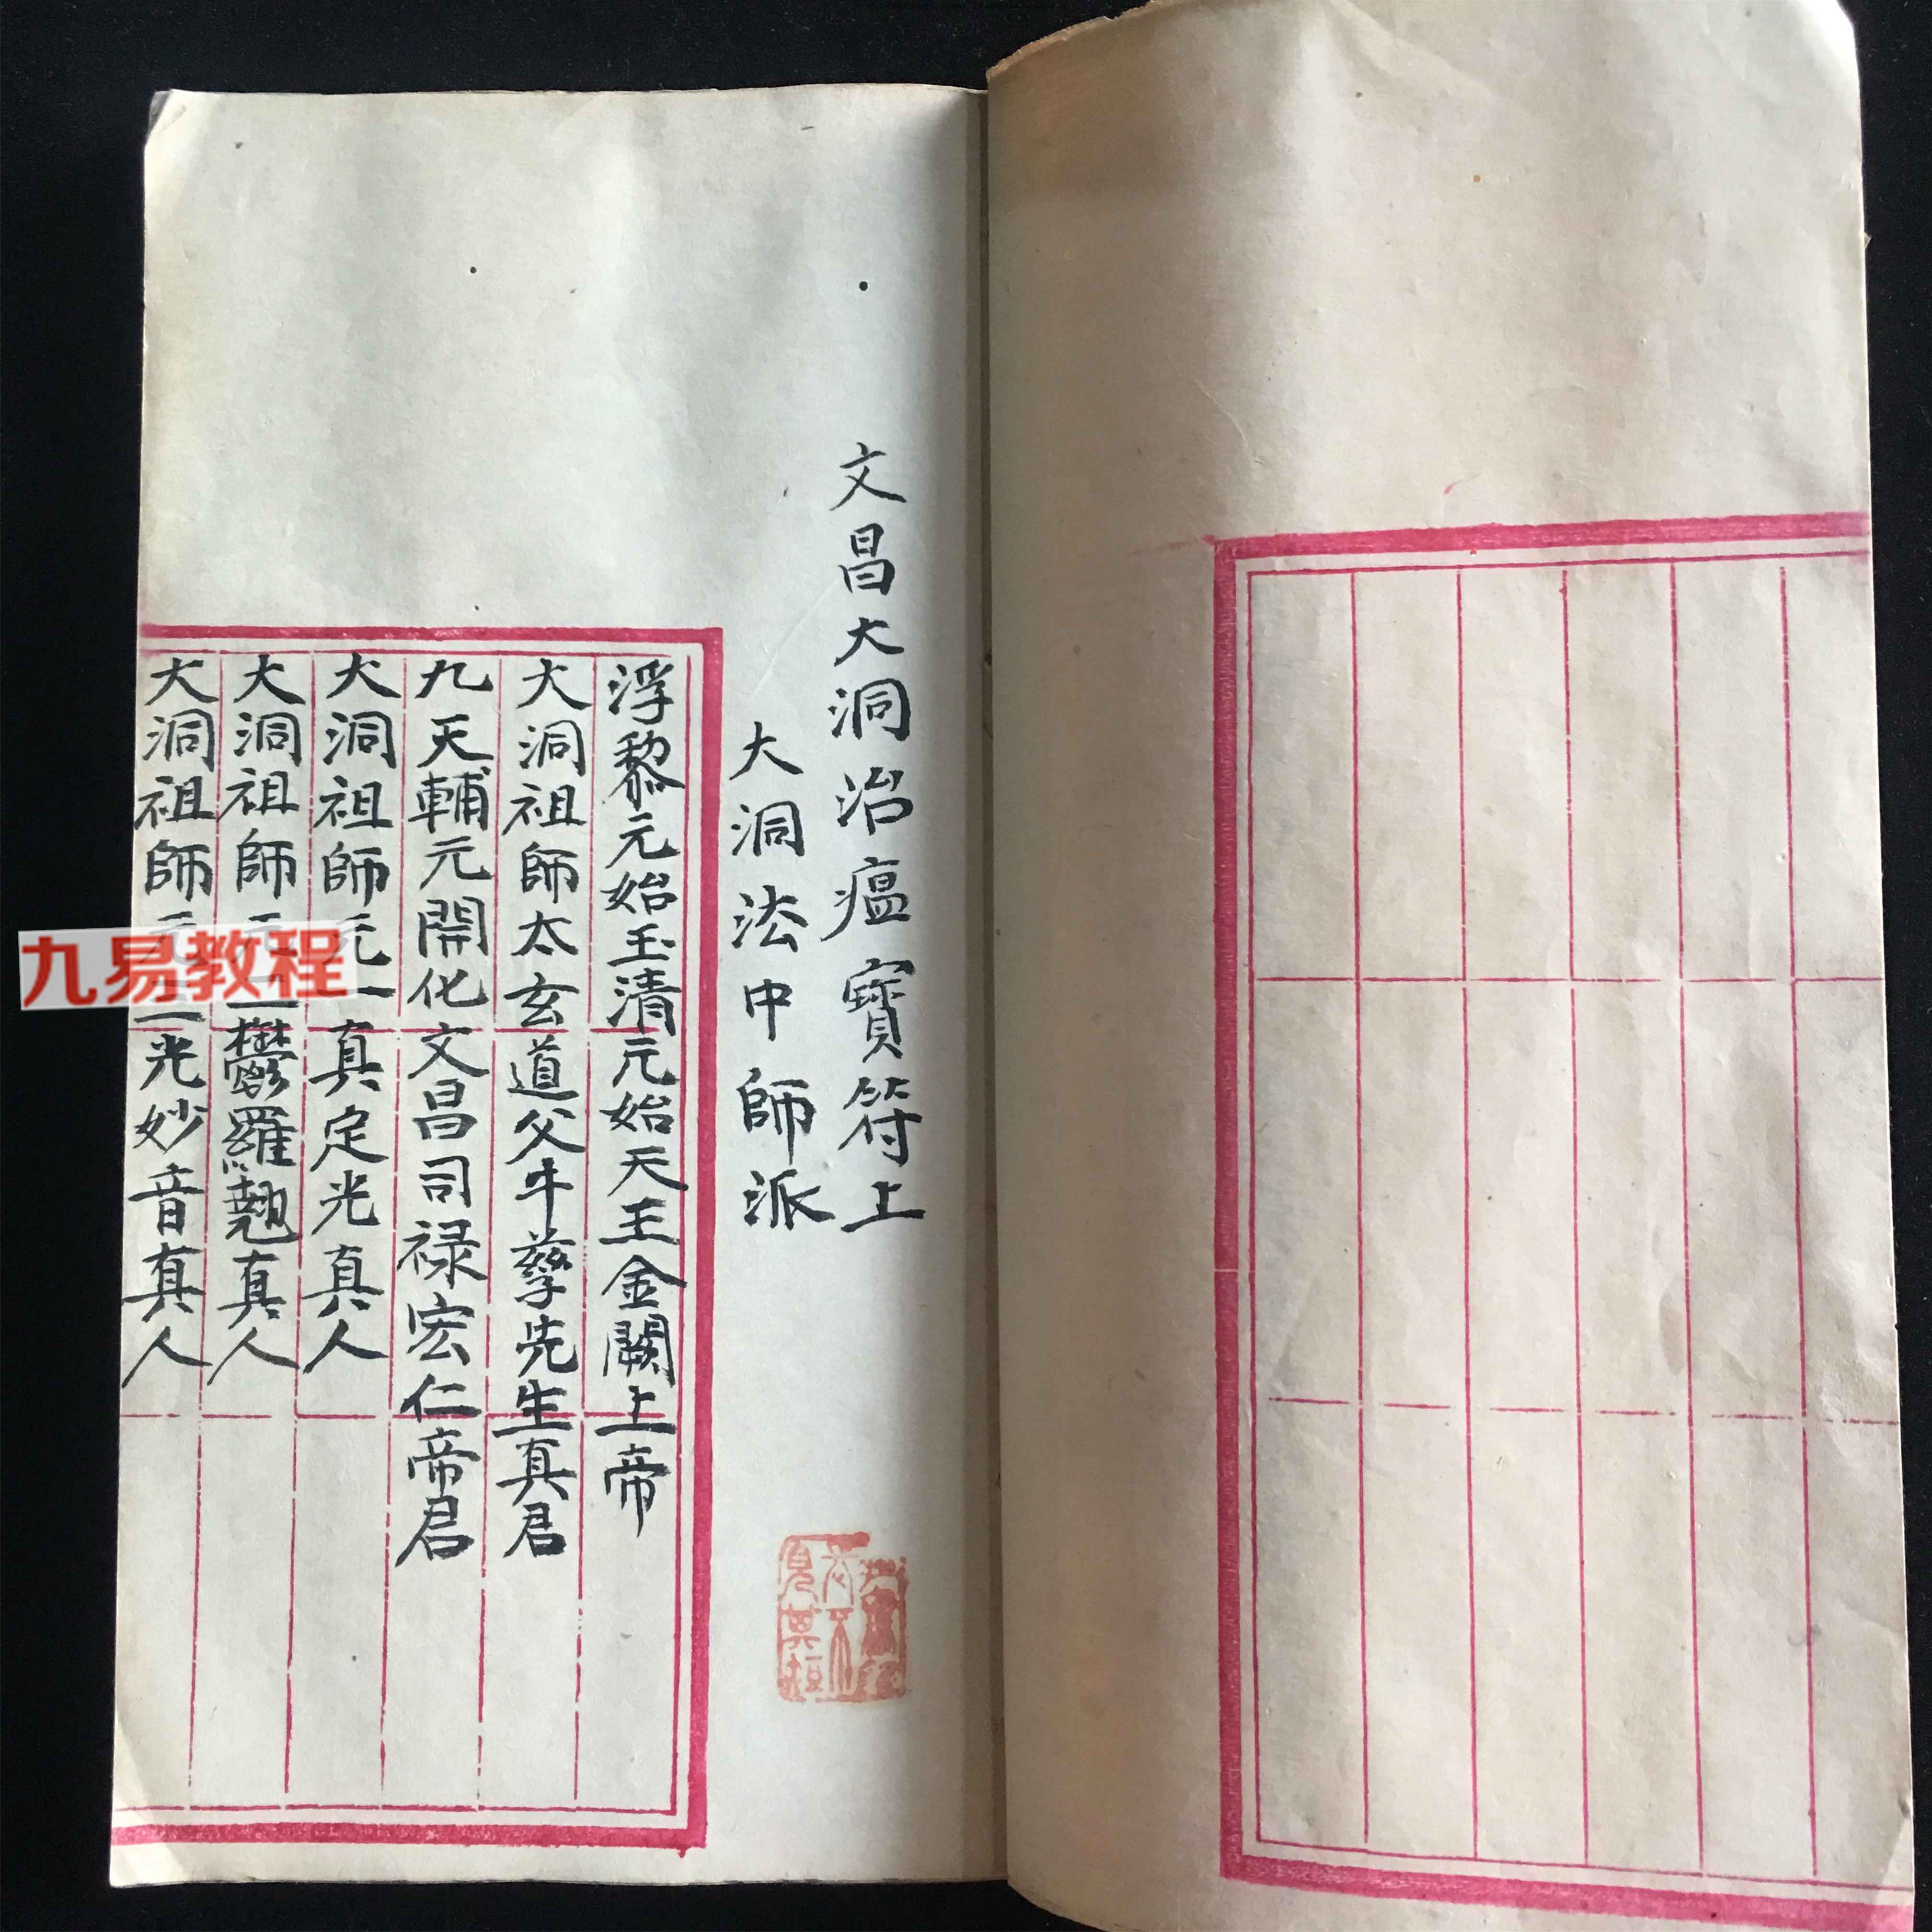 文昌大洞治瘟寶符上
大洞法中師派
浮黎元始玉清元始天王金闕上帝
大洞祖師太玄道父牛孽先生真君
九天輔元開化文昌司禄宏仁帝君
大洞祖師元一真定光真人
大洞祖師元二鬱羅翹真人
大洞祖師元三光妙音真人
九易教程